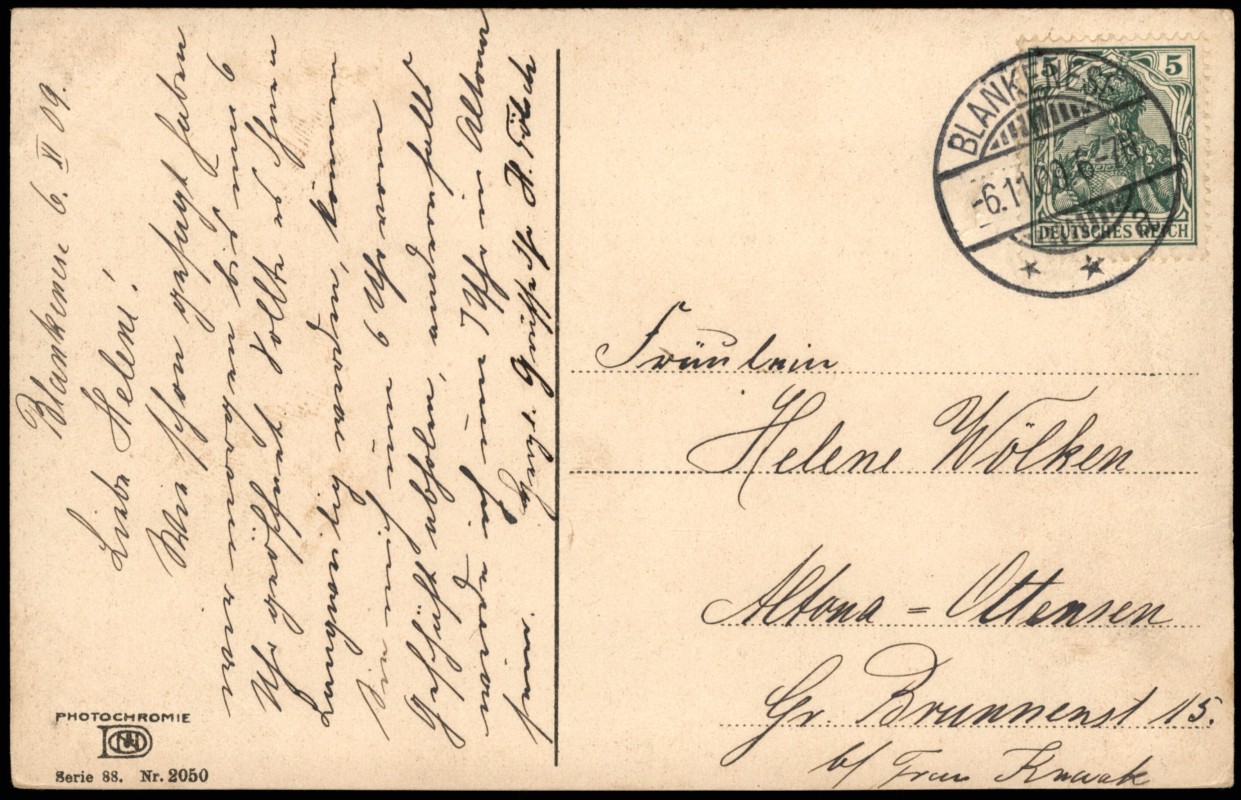 Blankenese 6. XI 09.
Liebe Helene!
Wie schon gesagt haben
wir morgen bis um 6
Uhr geöffnet. Sollte es Ihnen
langweilig werden, können
Sie mich um 6 Uhr vom
Geschäft abholen, andernfalls
werde ich um 7 Uhr in Altona
sein. Herzl. Grüsse Ihr H.
PHOTOCHROMIE
Serie 88. Nr. 2050
BLANKENESE
-6.11.09.6-7N.
a
5 5
DEUTSCHES REICH
Fräulein
Helene Wölken
Altona = Ottensen
Gr. Brunnenst 15.
b/ Frau